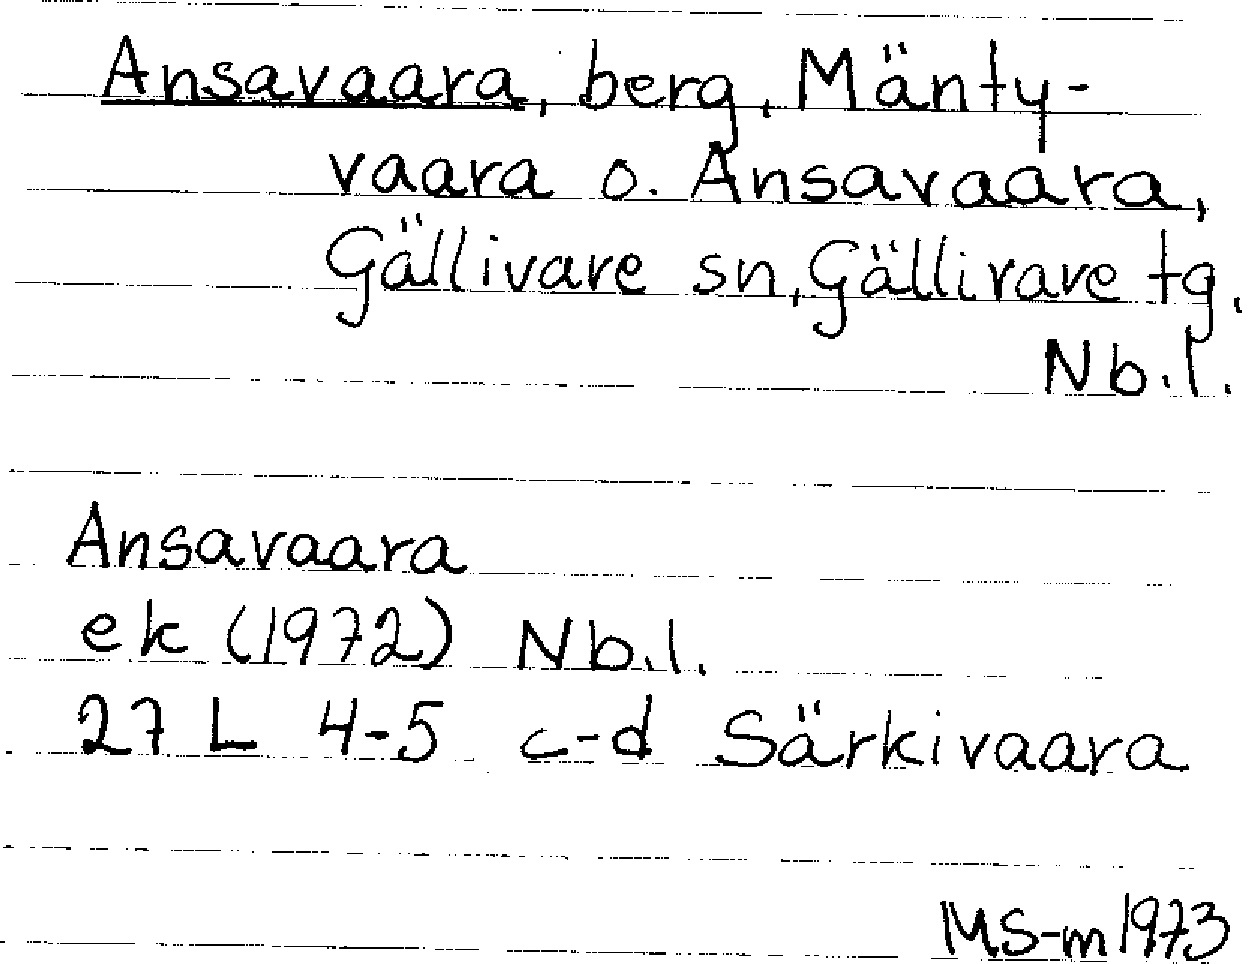 Ansavaara, berg, Mänty-
vaara o. Ansavaara,
Gällivare sn, Gällivare tg.
Nb.l.
Ansavaara
ek (1972) Nb.l.
27 L 4-5 c-d Särkivaara
MS-m 1973